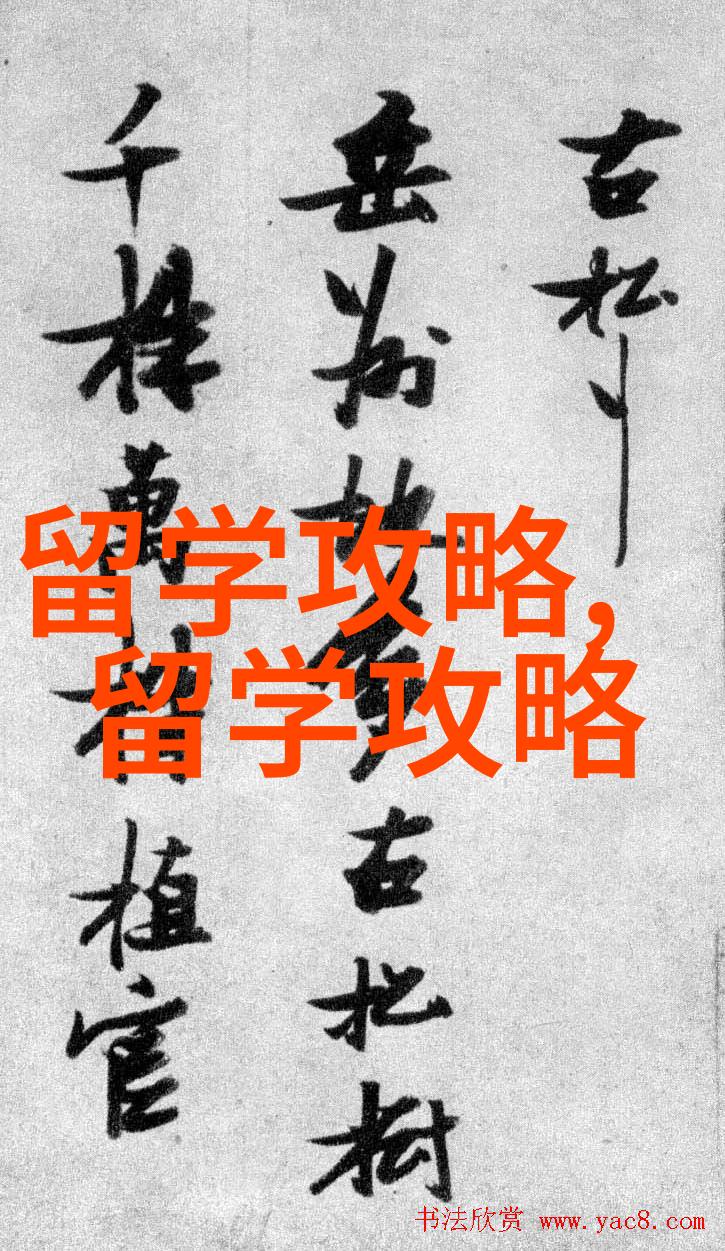 古松
岳州地古松樹
千株萬植官
留学攻略,
留学攻略
书法欣赏 www.yac8.com